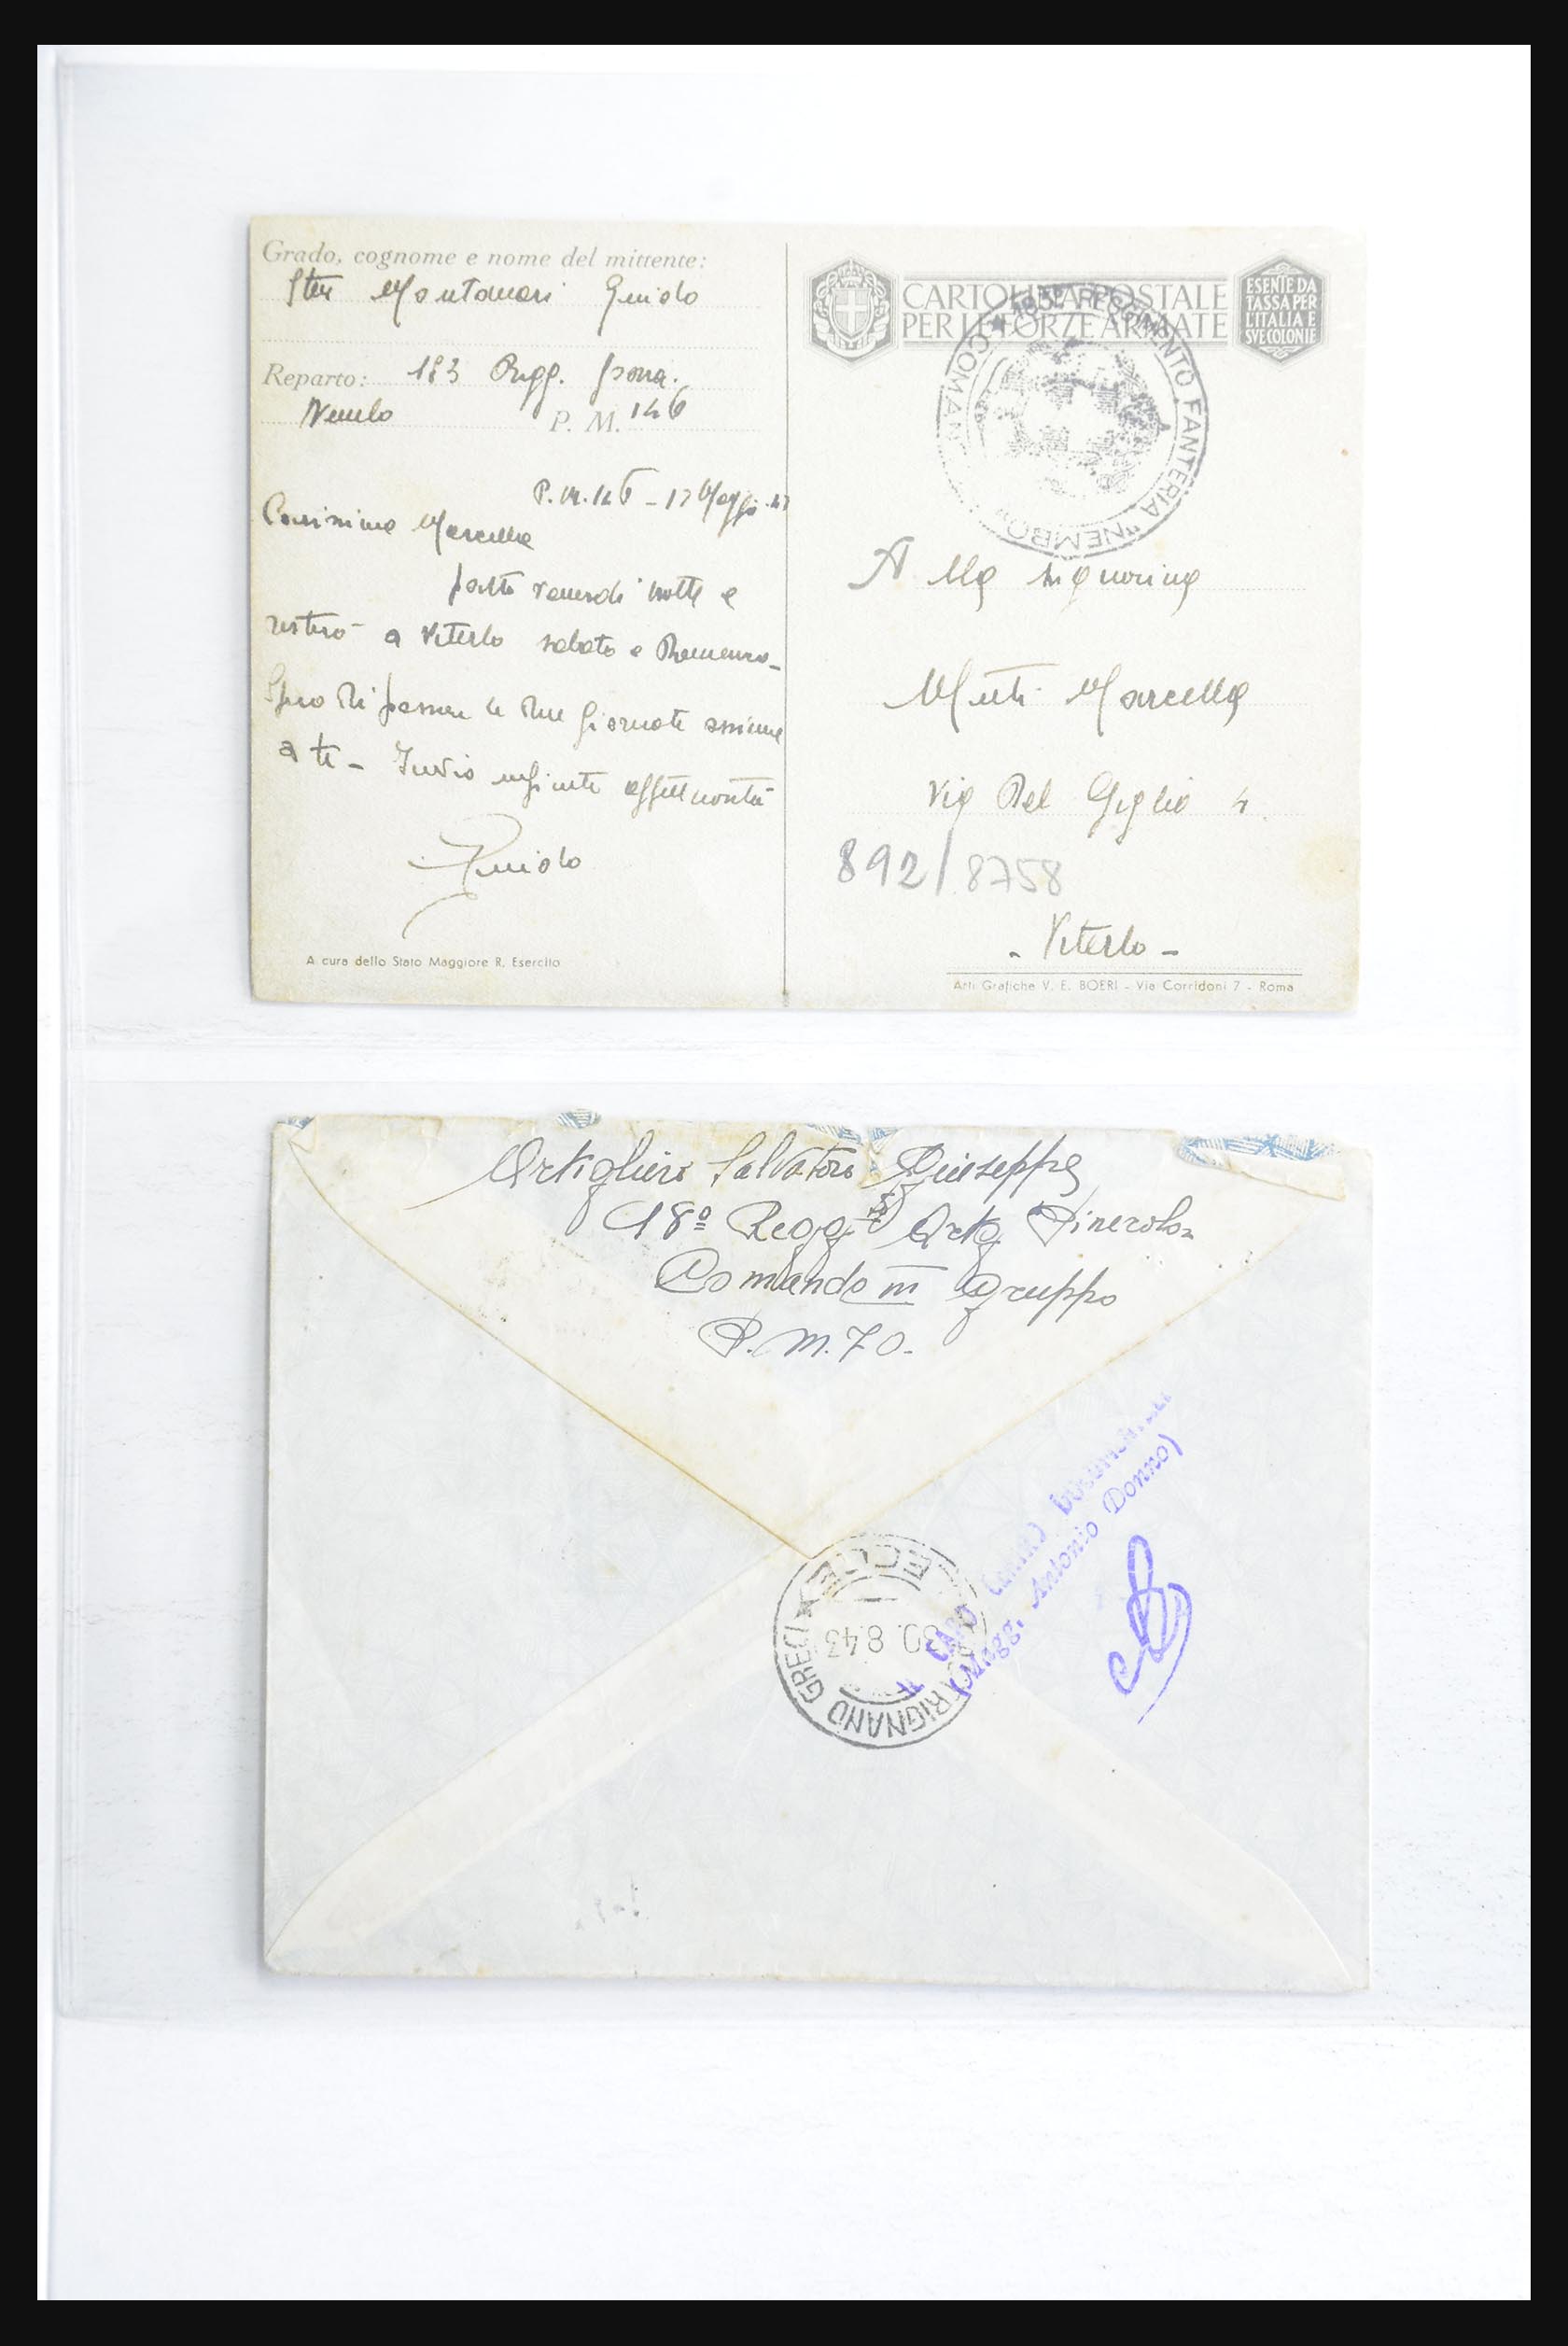 Grado, cognome e nome del mittente:
Sten Montanari Guido
Reparto: 183 Regg. 
Nembo P. M. 146
P.M. 146 - 17 Maggio 43
Carissima Marcella
parto venerdi notte e
resterò a Viterbo sabato e Domenica -
Spero di passare le due giornate assieme
a te - Invio infinite affettuosità
Guido
A cura dello Stato Maggiore R. Esercito
CARTOLINA POSTALE
PER LE FORZE ARMATE
ESENTE DA
TASSA PER
L'ITALIA E
SVE COLONIE
COMANDO ★ 183º REGGIMENTO FANTERIA "NEMBO"
Alla Signorina
Marcella
Via Del Giglio 4
892/8758
- Viterbo -
Arti Grafiche V. E. BOERI - Via Corridoni 7 - Roma
Artigliere Salvatore Giuseppe
18º Regg Art Pinerolo
Comando III Gruppo
P.M. 70.
IL CAPO
(Magg. Antonio Donno)
RIGNANO GRECI ★ LECCE
30.8.43